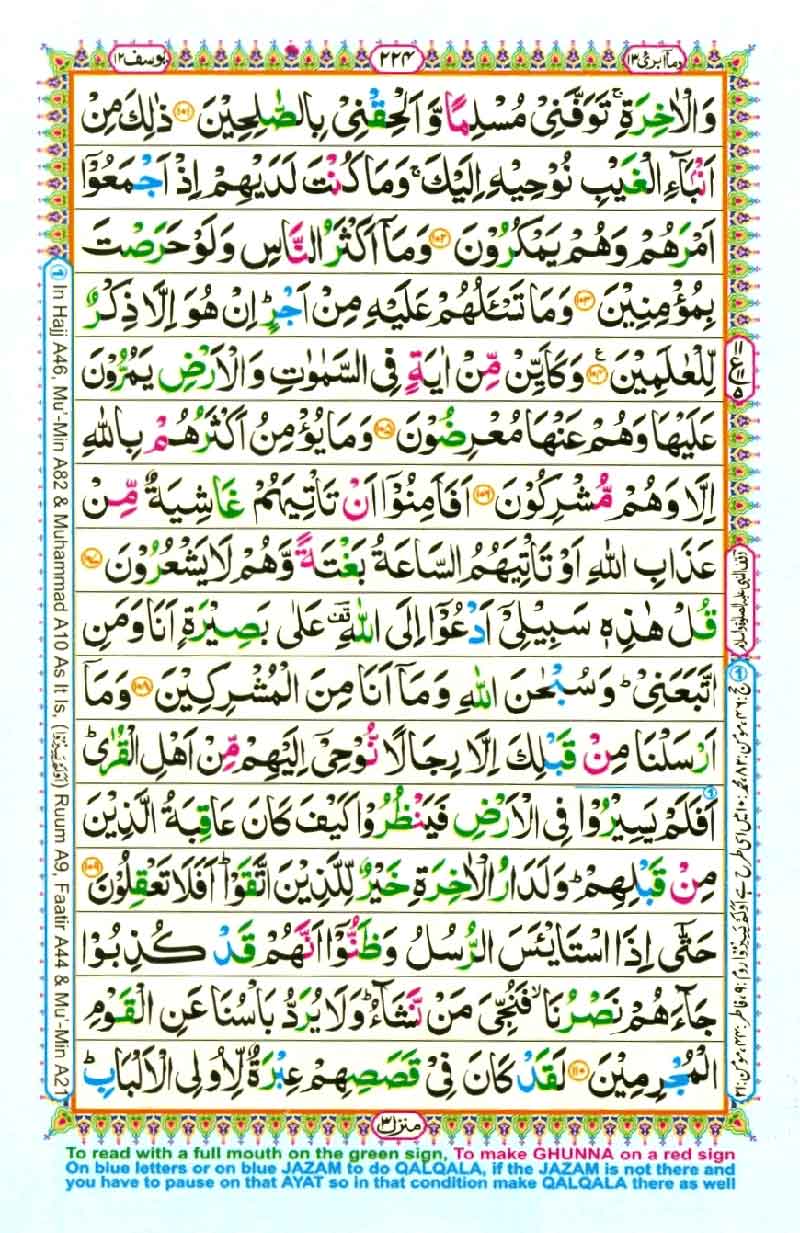 وما ابرئ ١٣
٢٢٤
يوسف ١٢
وَالْاٰخِرَةِ ۚ تَوَفَّنِیْ مُسْلِمًا وَّ اَلْحِقْنِیْ بِالصّٰلِحِیْنَ ﴿۱۰۱﴾ ذٰلِكَ مِنْ
اَنْۢبَآءِ الْغَیْبِ نُوْحِیْهِ اِلَیْكَ ۚ وَمَا كُنْتَ لَدَیْهِمْ اِذْ اَجْمَعُوْۤا
اَمْرَهُمْ وَهُمْ یَمْكُرُوْنَ ﴿۱۰۲﴾ وَمَاۤ اَكْثَرُ النَّاسِ وَلَوْ حَرَصْتَ
بِمُؤْمِنِیْنَ ﴿۱۰۳﴾ وَمَا تَسْـَٔلُهُمْ عَلَیْهِ مِنْ اَجْرٍ ؕ اِنْ هُوَ اِلَّا ذِكْرٌ
لِّلْعٰلَمِیْنَ ﴿۱۰۴﴾ وَكَاَیِّنْ مِّنْ اٰیَةٍ فِی السَّمٰوٰتِ وَالْاَرْضِ یَمُرُّوْنَ
عَلَیْهَا وَهُمْ عَنْهَا مُعْرِضُوْنَ ﴿۱۰۵﴾ وَمَا یُؤْمِنُ اَكْثَرُهُمْ بِاللّٰهِ
اِلَّا وَهُمْ مُّشْرِكُوْنَ ﴿۱۰۶﴾ اَفَاَمِنُوْۤا اَنْ تَاْتِیَهُمْ غَاشِیَةٌ مِّنْ
عَذَابِ اللّٰهِ اَوْ تَاْتِیَهُمُ السَّاعَةُ بَغْتَةً وَّهُمْ لَا یَشْعُرُوْنَ ﴿۱۰۷﴾
قُلْ هٰذِهٖ سَبِیْلِیْۤ اَدْعُوْۤا اِلَی اللّٰهِ ؔ۫ عَلٰی بَصِیْرَةٍ اَنَا وَمَنِ
اتَّبَعَنِیْ ؕ وَسُبْحٰنَ اللّٰهِ وَمَاۤ اَنَا مِنَ الْمُشْرِكِیْنَ ﴿۱۰۸﴾ وَمَاۤ
اَرْسَلْنَا مِنْ قَبْلِكَ اِلَّا رِجَالًا نُّوْحِیْۤ اِلَیْهِمْ مِّنْ اَهْلِ الْقُرٰی ؕ
اَفَلَمْ یَسِیْرُوْا فِی الْاَرْضِ فَیَنْظُرُوْا كَیْفَ كَانَ عَاقِبَةُ الَّذِیْنَ
مِنْ قَبْلِهِمْ ؕ وَلَدَارُ الْاٰخِرَةِ خَیْرٌ لِّلَّذِیْنَ اتَّقَوْا ؕ اَفَلَا تَعْقِلُوْنَ ﴿۱۰۹﴾
حَتّٰۤی اِذَا اسْتَایْـَٔسَ الرُّسُلُ وَظَنُّوْۤا اَنَّهُمْ قَدْ كُذِبُوْا
جَآءَهُمْ نَصْرُنَا ۙ فَنُجِّیَ مَنْ نَّشَآءُ ؕ وَلَا یُرَدُّ بَاْسُنَا عَنِ الْقَوْمِ
الْمُجْرِمِیْنَ ﴿۱۱۰﴾ لَقَدْ كَانَ فِیْ قَصَصِهِمْ عِبْرَةٌ لِّاُولِی الْاَلْبَابِ ؕ
منزل ٣
In Hajj A46, Mu'-Min A82 & Muhammad A10 As It Is, (اَوَلَمْ یَسِیْرُوْا) Ruum A9, Faatir A44 & Mu'-Min A21
To read with a full mouth on the green sign, To make GHUNNA on a red sign
On blue letters or on blue JAZAM to do QALQALA, if the JAZAM is not there and
you have to pause on that AYAT so in that condition make QALQALA there as well